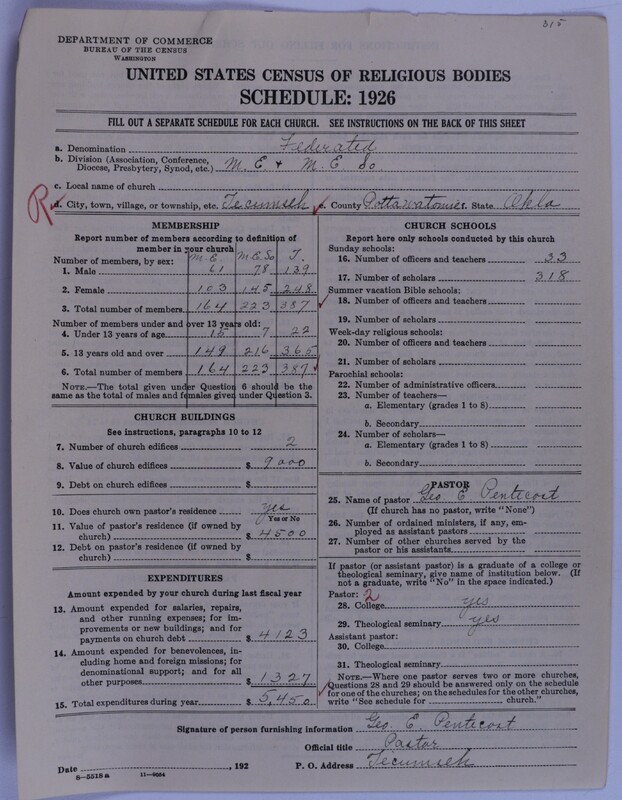 315
DEPARTMENT OF COMMERCE
BUREAU OF THE CENSUS
WASHINGTON
UNITED STATES CENSUS OF RELIGIOUS BODIES
SCHEDULE: 1926
FILL OUT A SEPARATE SCHEDULE FOR EACH CHURCH. SEE INSTRUCTIONS ON THE BACK OF THIS SHEET
a. Denomination Federated
b. Division (Association, Conference, Diocese, Presbytery, Synod, etc.) M. E & M. E So
c. Local name of church
R d. City, town, village, or township, etc. Tecumseh e. County Pottawatomie f. State Okla
MEMBERSHIP
Report number of members according to definition of
member in your church
Number of members, by sex: M.E. M.E.So T.
1. Male 61 78 139
2. Female 103 145 248
3. Total number of members 164 223 387
Number of members under and over 13 years old:
4. Under 13 years of age 15 7 22
5. 13 years old and over 149 216 365
6. Total number of members 164 223 387
NOTE.—The total given under Question 6 should be the
same as the total of males and females given under Question 3.
CHURCH BUILDINGS
See instructions, paragraphs 10 to 12
7. Number of church edifices 2
8. Value of church edifices $ 9000
9. Debt on church edifices $
10. Does church own pastor's residence? yes
Yes or No
11. Value of pastor's residence (if owned by
church) $ 4500
12. Debt on pastor's residence (if owned by
church) $
EXPENDITURES
Amount expended by your church during last fiscal year
13. Amount expended for salaries, repairs,
and other running expenses; for im-
provements or new buildings; and for
payments on church debt $ 4123
14. Amount expended for benevolences, in-
cluding home and foreign missions; for
denominational support; and for all
other purposes $ 1327
15. Total expenditures during year $ 5,450
CHURCH SCHOOLS
Report here only schools conducted by this church
Sunday schools:
16. Number of officers and teachers 33
17. Number of scholars 318
Summer vacation Bible schools:
18. Number of officers and teachers
19. Number of scholars
Week-day religious schools:
20. Number of officers and teachers
21. Number of scholars
Parochial schools:
22. Number of administrative officers
23. Number of teachers—
a. Elementary (grades 1 to 8)
b. Secondary
24. Number of scholars—
a. Elementary (grades 1 to 8)
b. Secondary
PASTOR
25. Name of pastor Geo. E Pentecost
(If church has no pastor, write "None")
26. Number of ordained ministers, if any, em-
ployed as assistant pastors
27. Number of other churches served by the
pastor or his assistants
If pastor (or assistant pastor) is a graduate of a college or
theological seminary, give name of institution below. (If
not a graduate, write "No" in the space indicated.)
Pastor: 2
28. College yes
29. Theological seminary yes
Assistant pastor:
30. College
31. Theological seminary
NOTE.—Where one pastor serves two or more churches,
Questions 28 and 29 should be answered only on the schedule
for one of the churches; on the schedules for the other churches,
write "See schedule for church."
Signature of person furnishing information Geo. E. Pentecost
Official title Pastor
Date , 192 P. O. Address Tecumseh
8—5518a 11—9684